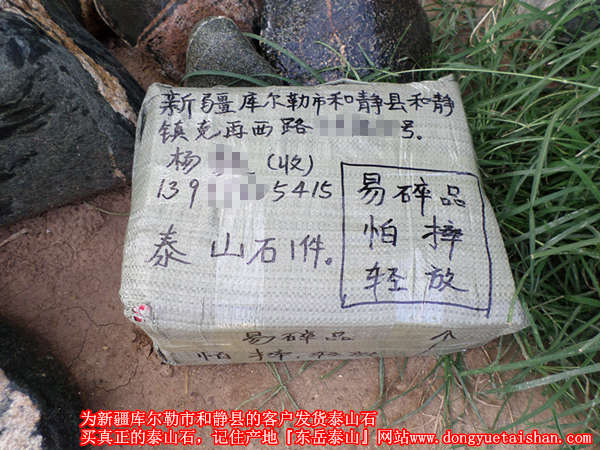 新疆库尔勒市和静县和静
镇克再西路 号。
杨 (收)
139 5415
泰山石1件。
易碎品
怕摔
轻放
易碎品
怕摔,轻放
为新疆库尔勒市和静县的客户发货泰山石
买真正的泰山石，记住产地『东岳泰山』网站www.dongyuetaishan.com